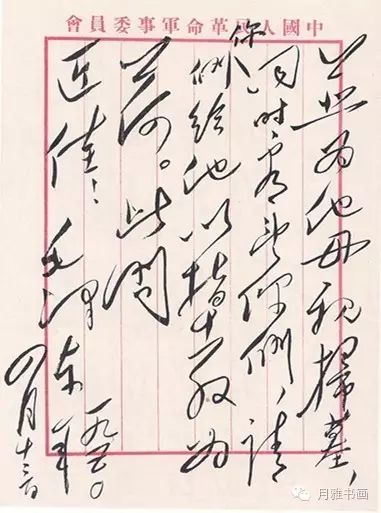 中國人民革命軍事委員會
並为他母親掃墓、
同时看望你們，请
你們给他以指教为
荷。此问
近佳！毛泽东
一九五〇年
四月十三日
月雅书画